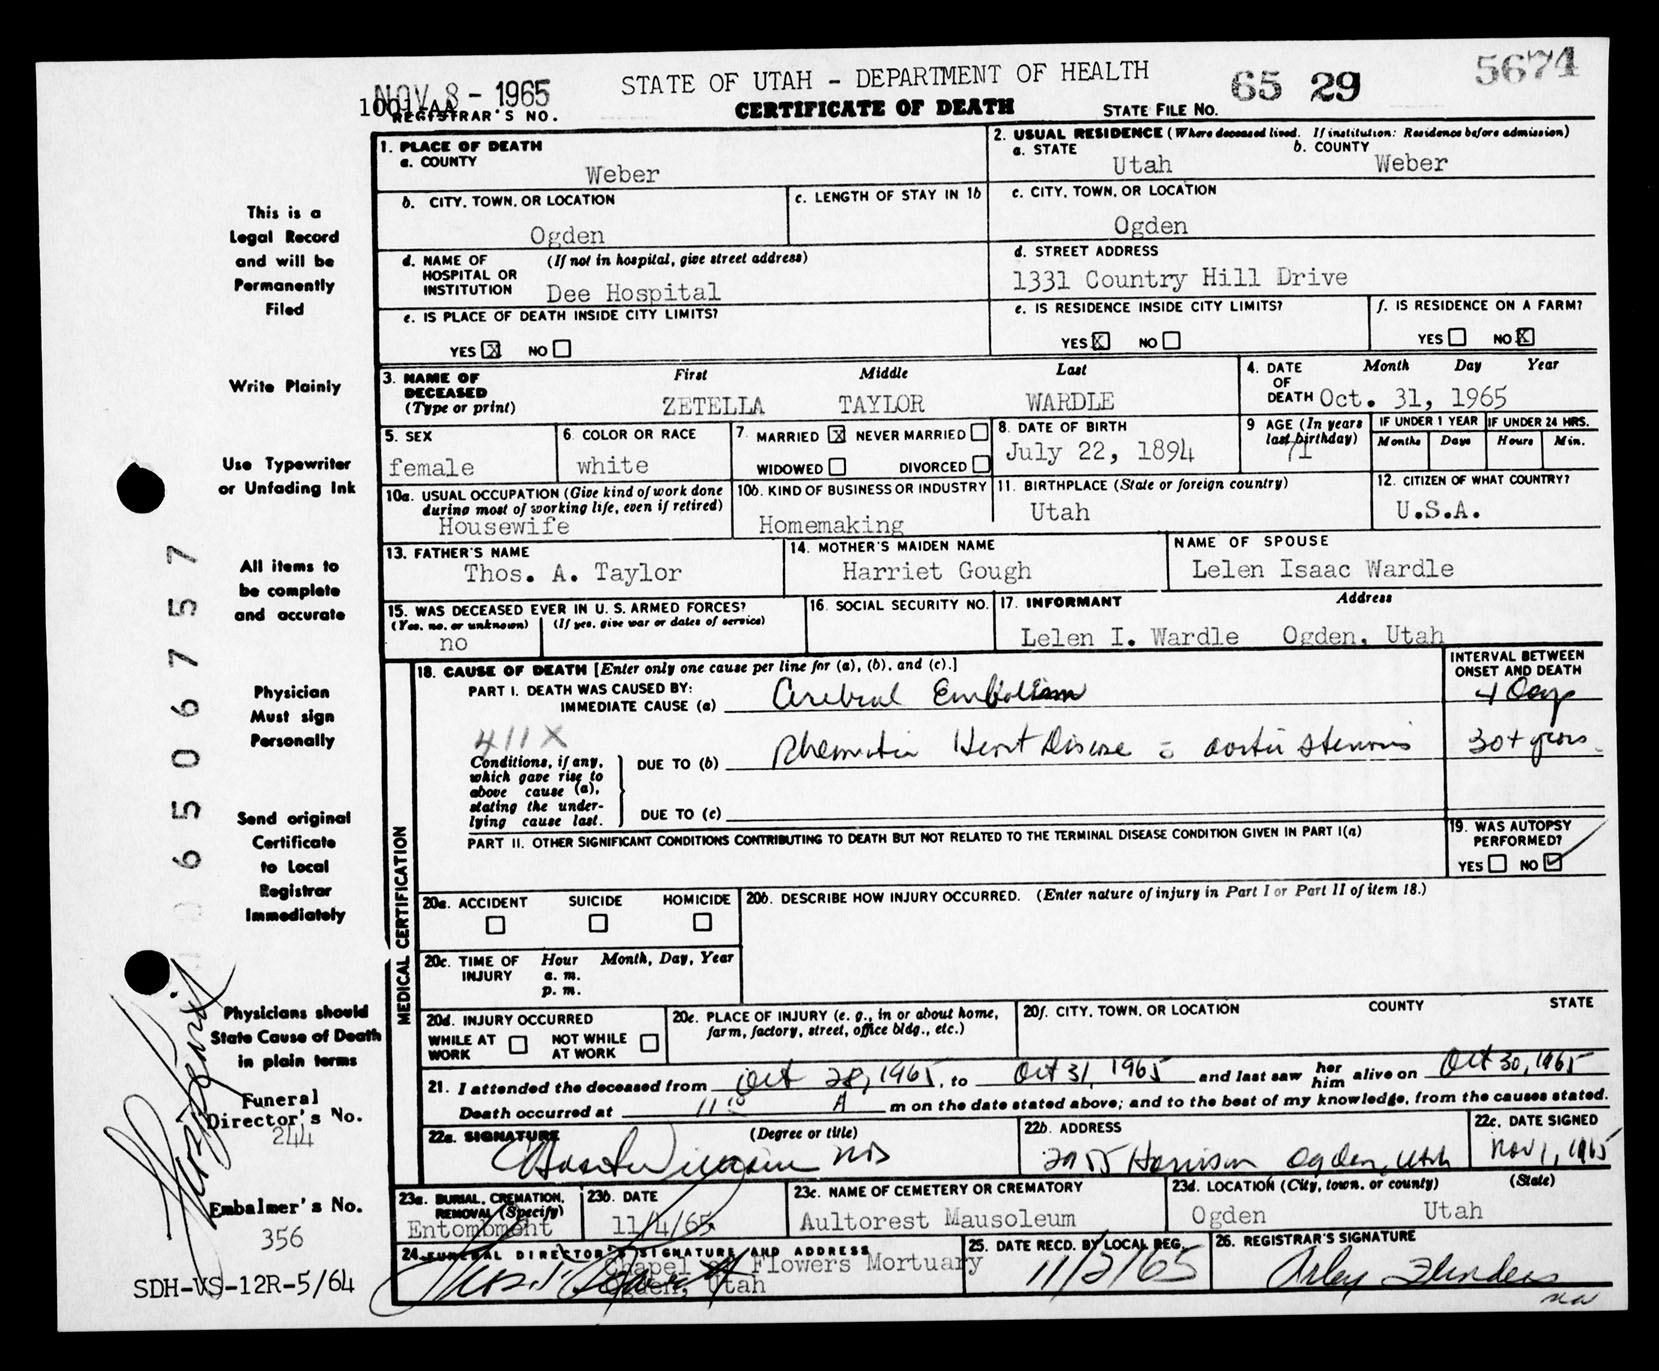 NOV 8 - 1965
STATE OF UTAH - DEPARTMENT OF HEALTH
65 29
5674
REGISTRAR'S NO.
CERTIFICATE OF DEATH
STATE FILE NO.
This is a
Legal Record
and will be
Permanently
Filed
Write Plainly
Use Typewriter
or Unfading Ink
All items to
be complete
and accurate
Physician
Must sign
Personally
Send original
Certificate
to Local
Registrar
Immediately
Physicians should
State Cause of Death
in plain terms
Funeral
Director's No.
244
Embalmer's No.
356
SDH-VS-12R-5/64
06506757
1. PLACE OF DEATH
a. COUNTY
Weber
2. USUAL RESIDENCE (Where deceased lived. If institution: Residence before admission)
a. STATE
Utah
b. COUNTY
Weber
b. CITY, TOWN, OR LOCATION
Ogden
c. LENGTH OF STAY IN 1b
c. CITY, TOWN, OR LOCATION
Ogden
d. NAME OF HOSPITAL OR INSTITUTION
(If not in hospital, give street address)
Dee Hospital
d. STREET ADDRESS
1331 Country Hill Drive
e. IS PLACE OF DEATH INSIDE CITY LIMITS?
YES X NO
e. IS RESIDENCE INSIDE CITY LIMITS?
YES X NO
f. IS RESIDENCE ON A FARM?
YES NO X
3. NAME OF DECEASED (Type or print)
First Middle Last
ZETELLA TAYLOR WARDLE
4. DATE OF DEATH
Month Day Year
Oct. 31, 1965
5. SEX
female
6. COLOR OR RACE
white
7. MARRIED X NEVER MARRIED
WIDOWED DIVORCED
8. DATE OF BIRTH
July 22, 1894
9 AGE (In years last birthday)
71
IF UNDER 1 YEAR
Months Days
IF UNDER 24 HRS.
Hours Min.
10a. USUAL OCCUPATION (Give kind of work done during most of working life, even if retired)
Housewife
10b. KIND OF BUSINESS OR INDUSTRY
Homemaking
11. BIRTHPLACE (State or foreign country)
Utah
12. CITIZEN OF WHAT COUNTRY?
U.S.A.
13. FATHER'S NAME
Thos. A. Taylor
14. MOTHER'S MAIDEN NAME
Harriet Gough
NAME OF SPOUSE
Lelen Isaac Wardle
15. WAS DECEASED EVER IN U. S. ARMED FORCES?
(Yes, no, or unknown) (If yes, give war or dates of service)
no
16. SOCIAL SECURITY NO.
17. INFORMANT Address
Lelen I. Wardle Ogden, Utah
MEDICAL CERTIFICATION
18. CAUSE OF DEATH [Enter only one cause per line for (a), (b), and (c).]
INTERVAL BETWEEN ONSET AND DEATH
PART I. DEATH WAS CAUSED BY:
IMMEDIATE CAUSE (a) Cerebral Embolism 4 Days
411X
Conditions, if any, which gave rise to above cause (a), stating the underlying cause last.
DUE TO (b) Rheumatic Heart Disease c aortic stenosis 30+ years
DUE TO (c)
PART II. OTHER SIGNIFICANT CONDITIONS CONTRIBUTING TO DEATH BUT NOT RELATED TO THE TERMINAL DISEASE CONDITION GIVEN IN PART I(a)
19. WAS AUTOPSY PERFORMED?
YES NO
20a. ACCIDENT SUICIDE HOMICIDE
20b. DESCRIBE HOW INJURY OCCURRED. (Enter nature of injury in Part I or Part II of item 18.)
20c. TIME OF INJURY
Hour Month, Day, Year
a. m.
p. m.
20d. INJURY OCCURRED
WHILE AT WORK NOT WHILE AT WORK
20e. PLACE OF INJURY (e. g., in or about home, farm, factory, street, office bldg., etc.)
20f. CITY, TOWN, OR LOCATION COUNTY STATE
21. I attended the deceased from Oct 28, 1965, to Oct 31, 1965 and last saw her him alive on Oct 30, 1965
Death occurred at 11 10 A m on the date stated above; and to the best of my knowledge, from the causes stated.
22a. SIGNATURE (Degree or title)
MD
22b. ADDRESS
Harrison, Ogden, Utah
22c. DATE SIGNED
Nov 1, 1965
23a. BURIAL, CREMATION, REMOVAL (Specify)
Entombment
23b. DATE
11/4/65
23c. NAME OF CEMETERY OR CREMATORY
Aultorest Mausoleum
23d. LOCATION (City, town, or county) (State)
Ogden Utah
24. FUNERAL DIRECTOR'S SIGNATURE AND ADDRESS
Chapel of Flowers Mortuary
Ogden, Utah
25. DATE RECD. BY LOCAL REG.
11/2/65
26. REGISTRAR'S SIGNATURE